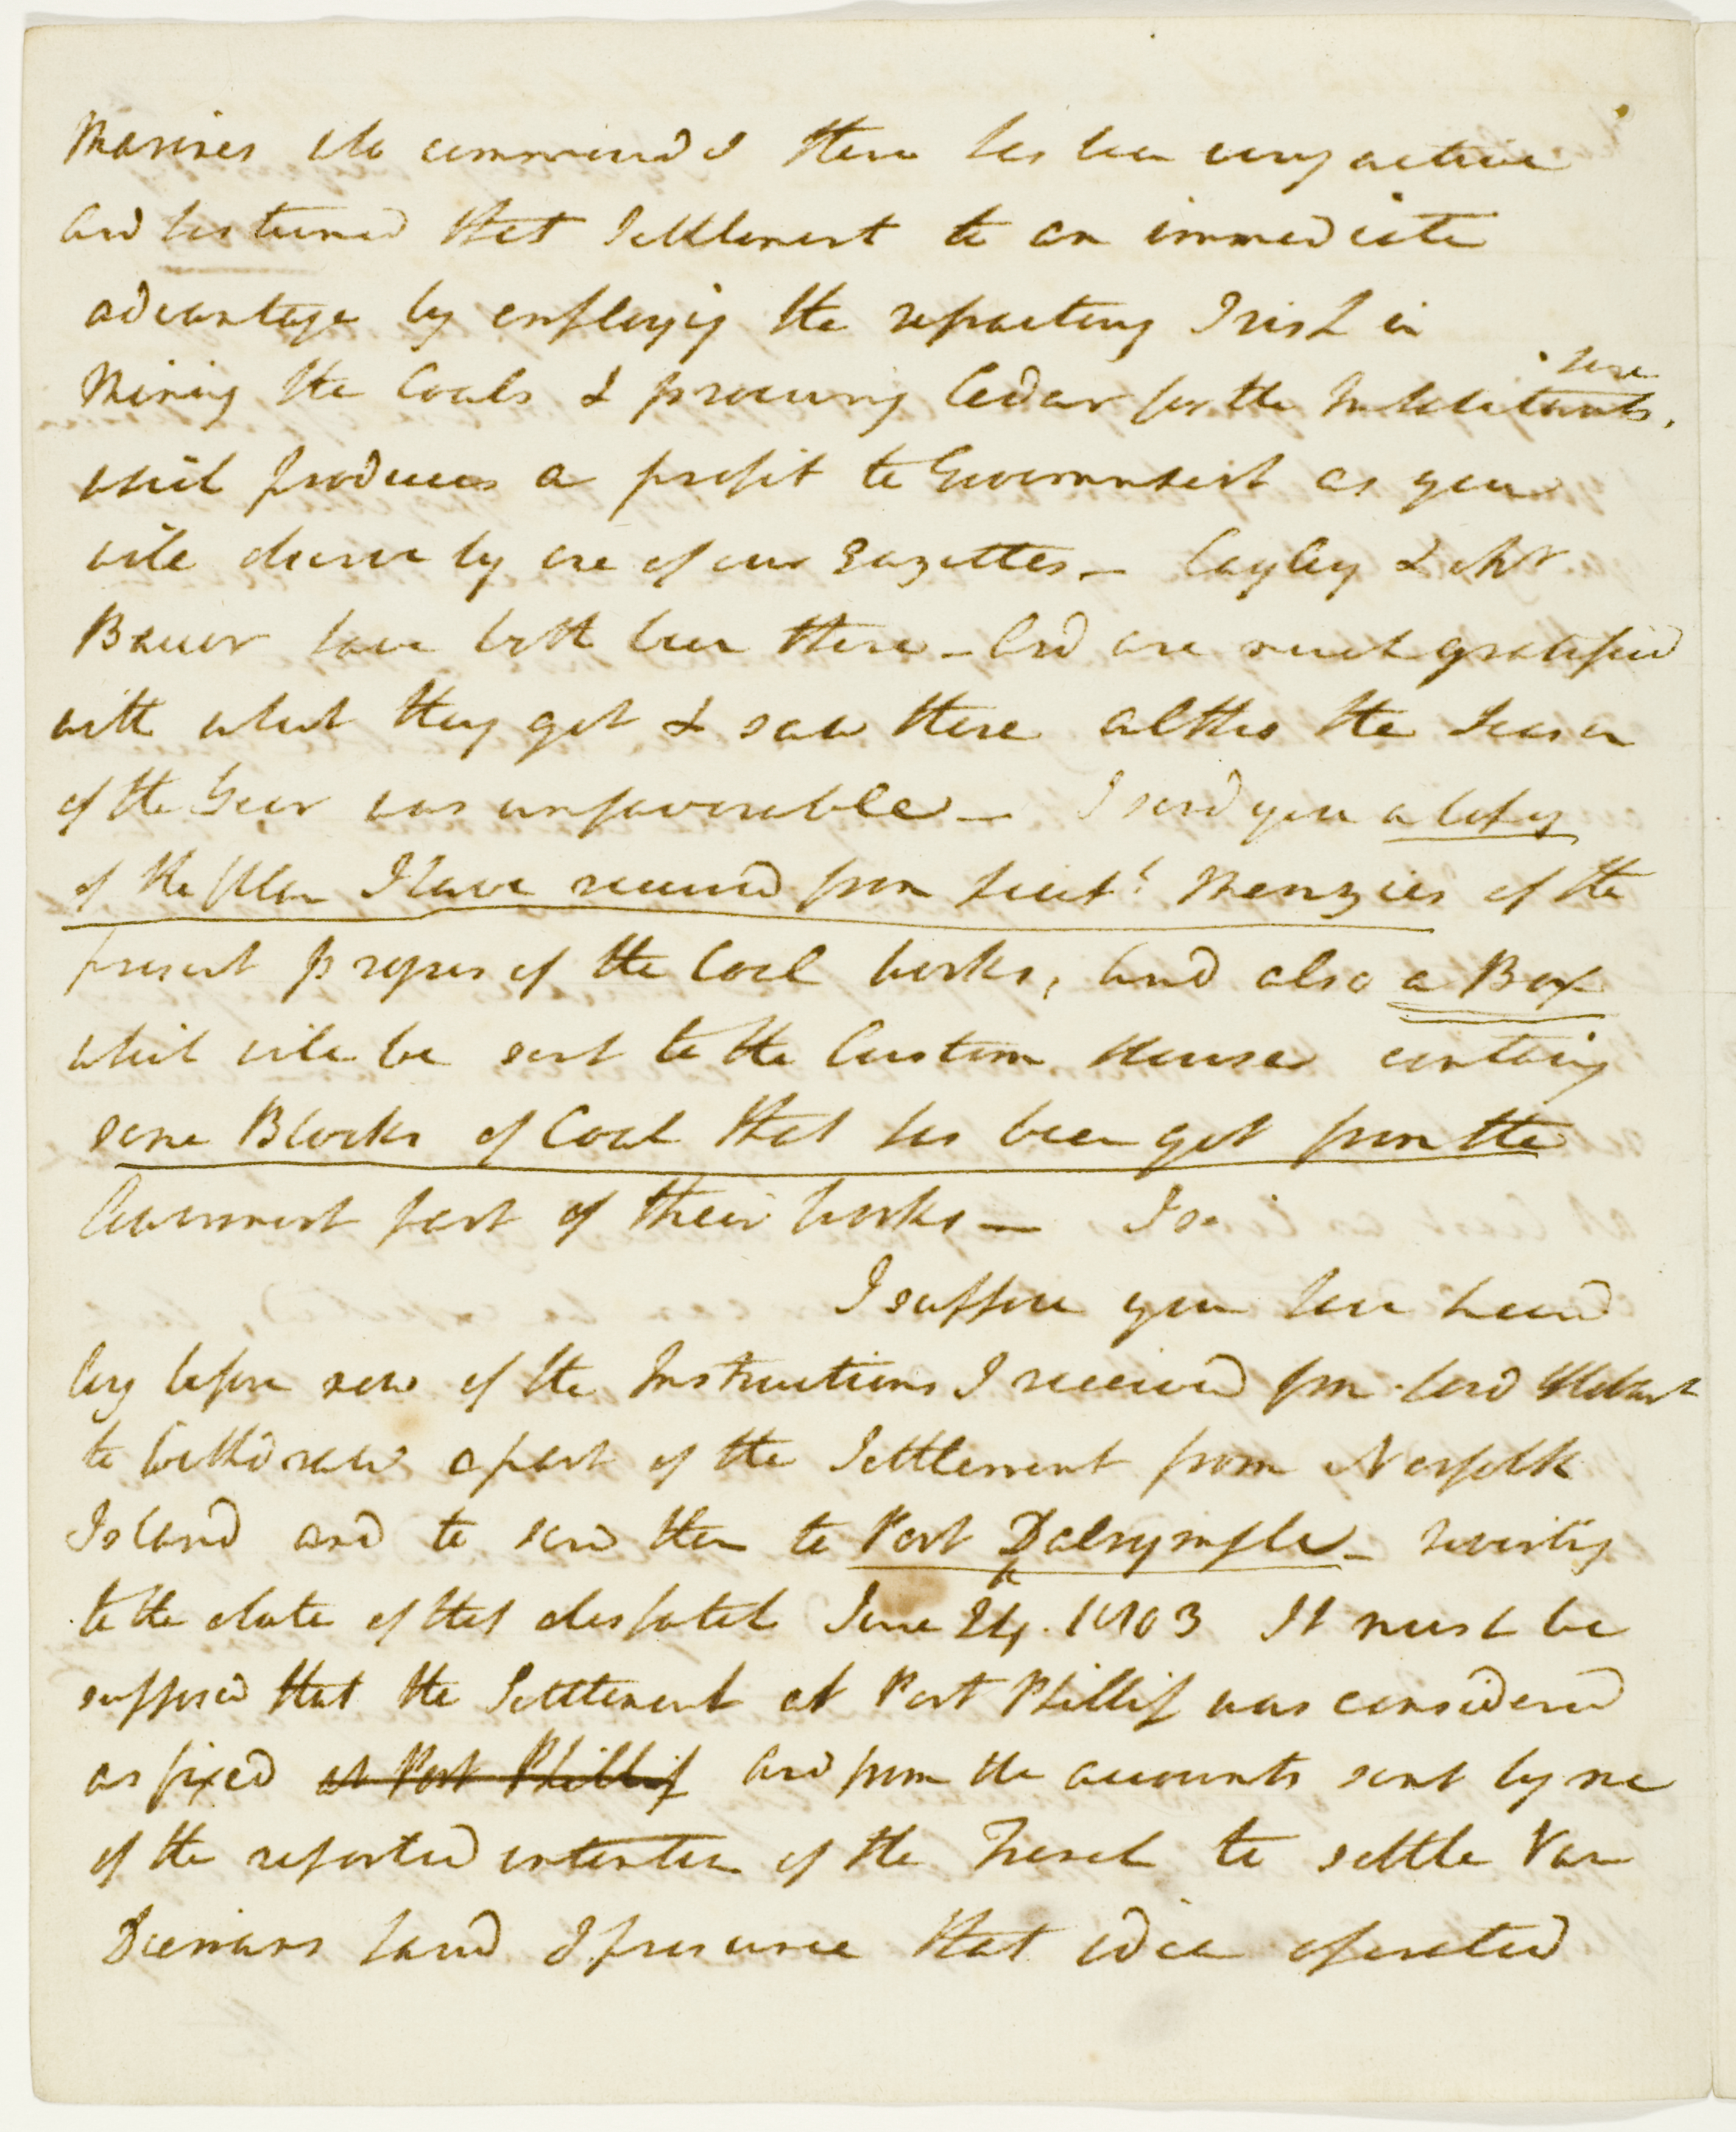 Marines who commands there has been very active
and has turned that Settlement to an immediate
advantage by employing the refractory Irish in
Mining the Coals & procuring Cedar for the Inhabitants, here
which produces a profit to Government as you
will observe by one of our Gazettes – Cayley & Mr
Bauer have both been there – And are much gratified
with what they got & saw there altho the Season
of the Year was unfavourable – I send you a Copy
of the plan I have received from Lieut.t Menzies of the
present progress of the Coal works, And also a Box
which will be sent to the Custom House containg
some Blocks of Coal that has been got from the
part of their works –
I suppose you have heard
long before now of the Instructions I received from Lord Hobart
to withdraw a part of the Settlement from Norfolk
Island and to send them to Port Dalrymple – reverting
to the date of that dispatch June 24. 1803 It must be
supposed that the Settlement at Port Phillip was considered
as fixed at Port Phillip And from the accounts sent by me
of the reported intention of the French to settle Van
Diemans Land I presume that idea operated